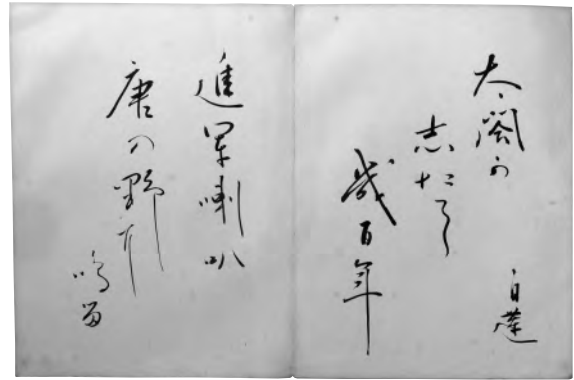 太閤の
幾百年
白蓮
進軍喇叭
唐の野に
鳴る